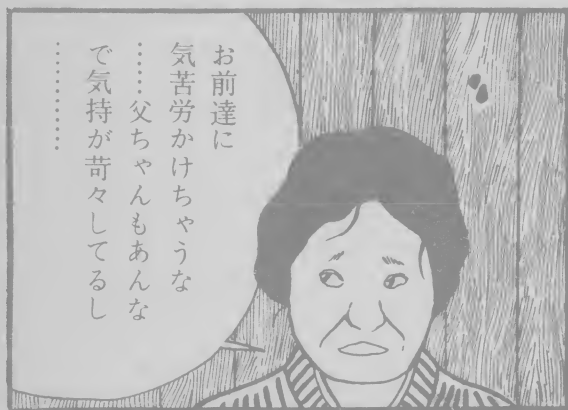 お前達に
気苦労かけちゃうな
……父ちゃんもあんな
で気持が苛々してるし
…………